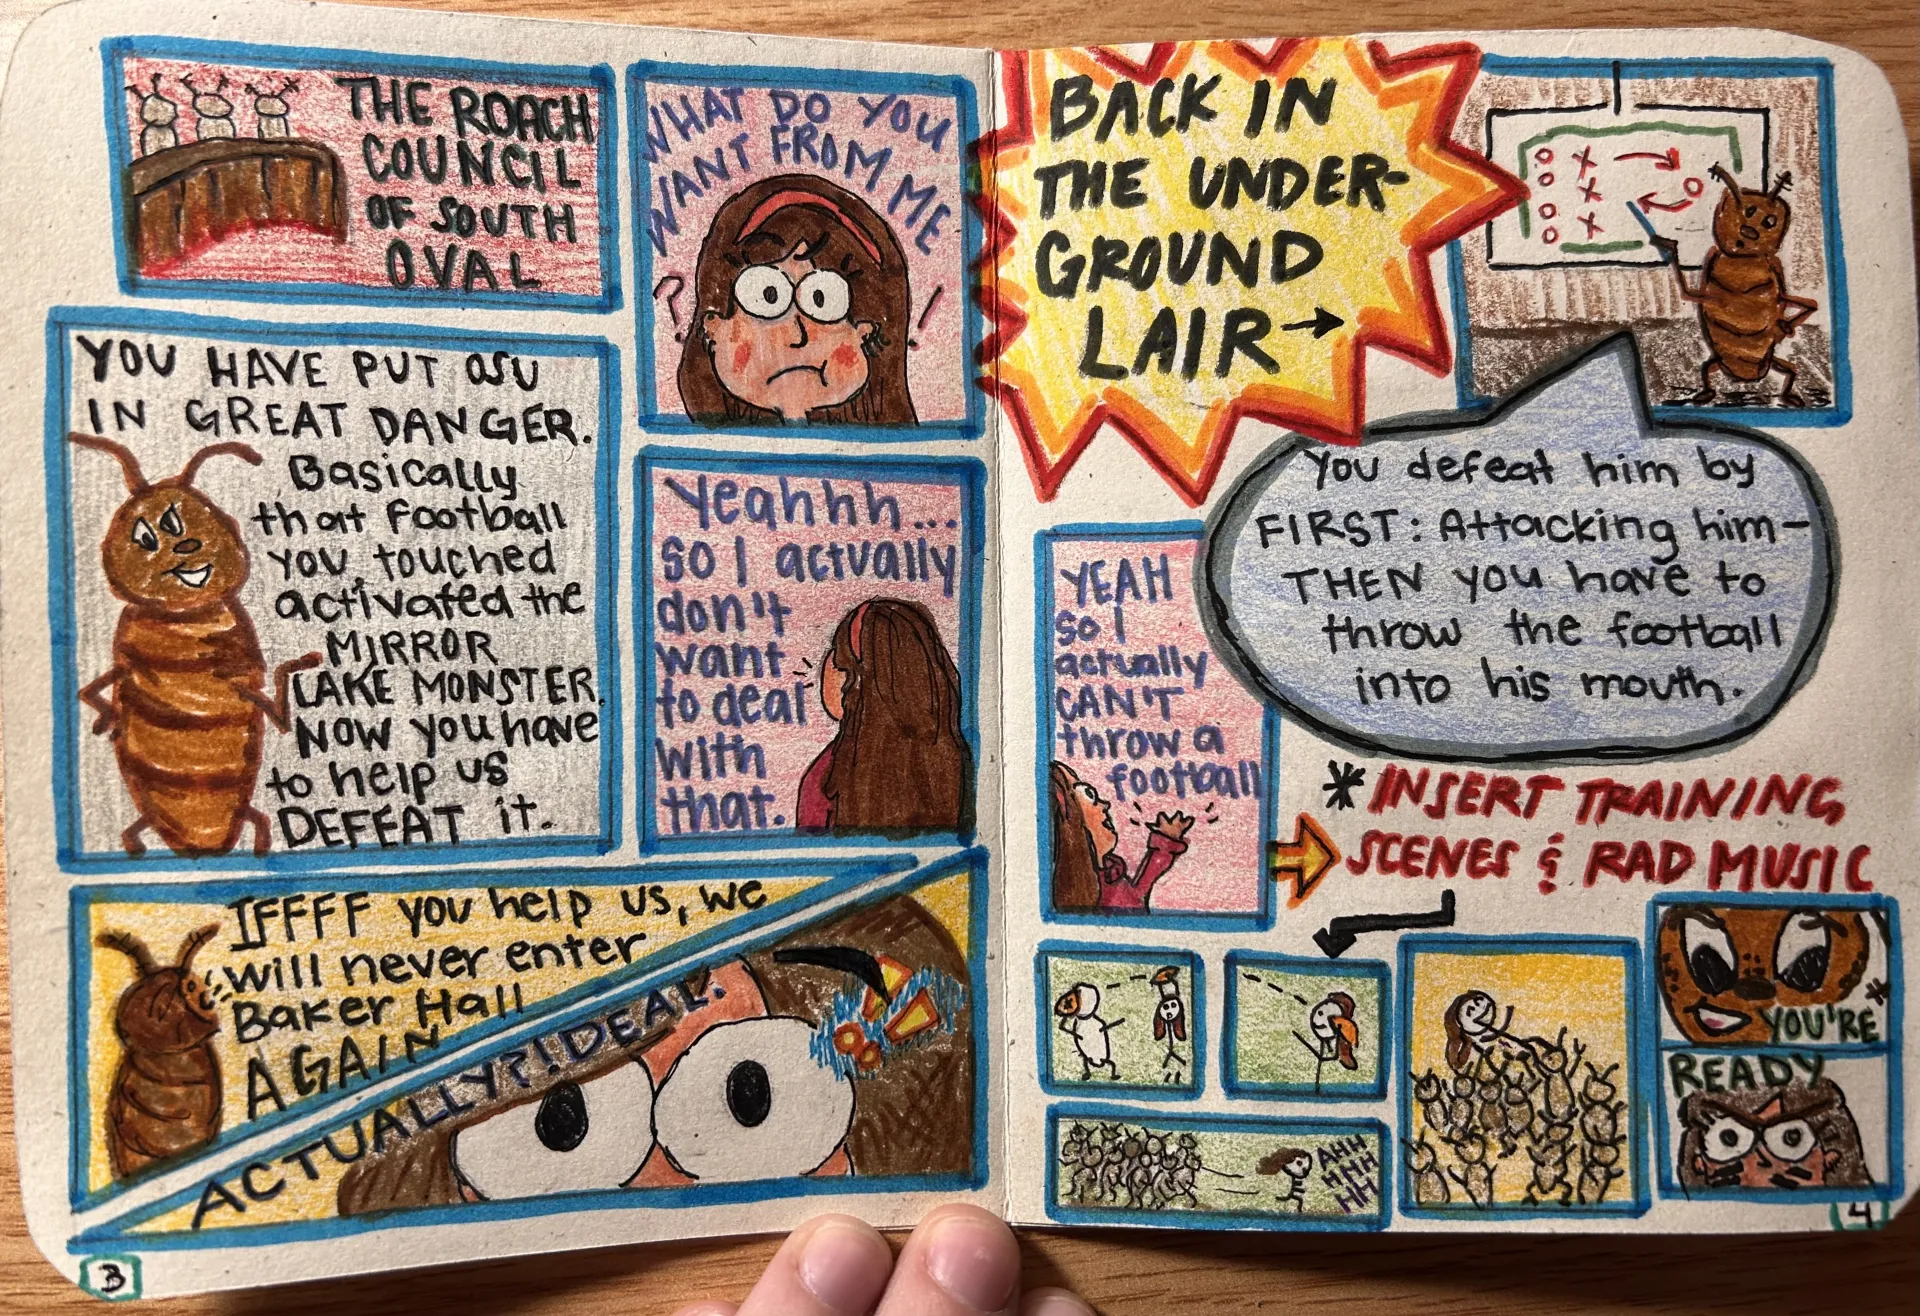 THE ROACH
COUNCIL
OF SOUTH
OVAL
WHAT DO YOU
WANT FROM ME
? !
YOU HAVE PUT OSU
IN GREAT DANGER.
Basically
that football
you touched
activated the
MIRROR
LAKE MONSTER.
NOW you have
to help us
DEFEAT it.
Yeahhh...
so I actually
don't
want
to deal
with
that.
IFFFF you help us, we
will never enter
Baker Hall
AGAIN
ACTUALLY?! DEAL.
3
BACK IN
THE UNDER-
GROUND
LAIR →
You defeat him by
FIRST: Attacking him—
THEN you have to
throw the football
into his mouth.
YEAH
so I
actually
CAN'T
throw a
football
* INSERT TRAINING
SCENES & RAD MUSIC
AHH
HHH
HH
YOU'RE *
READY
4